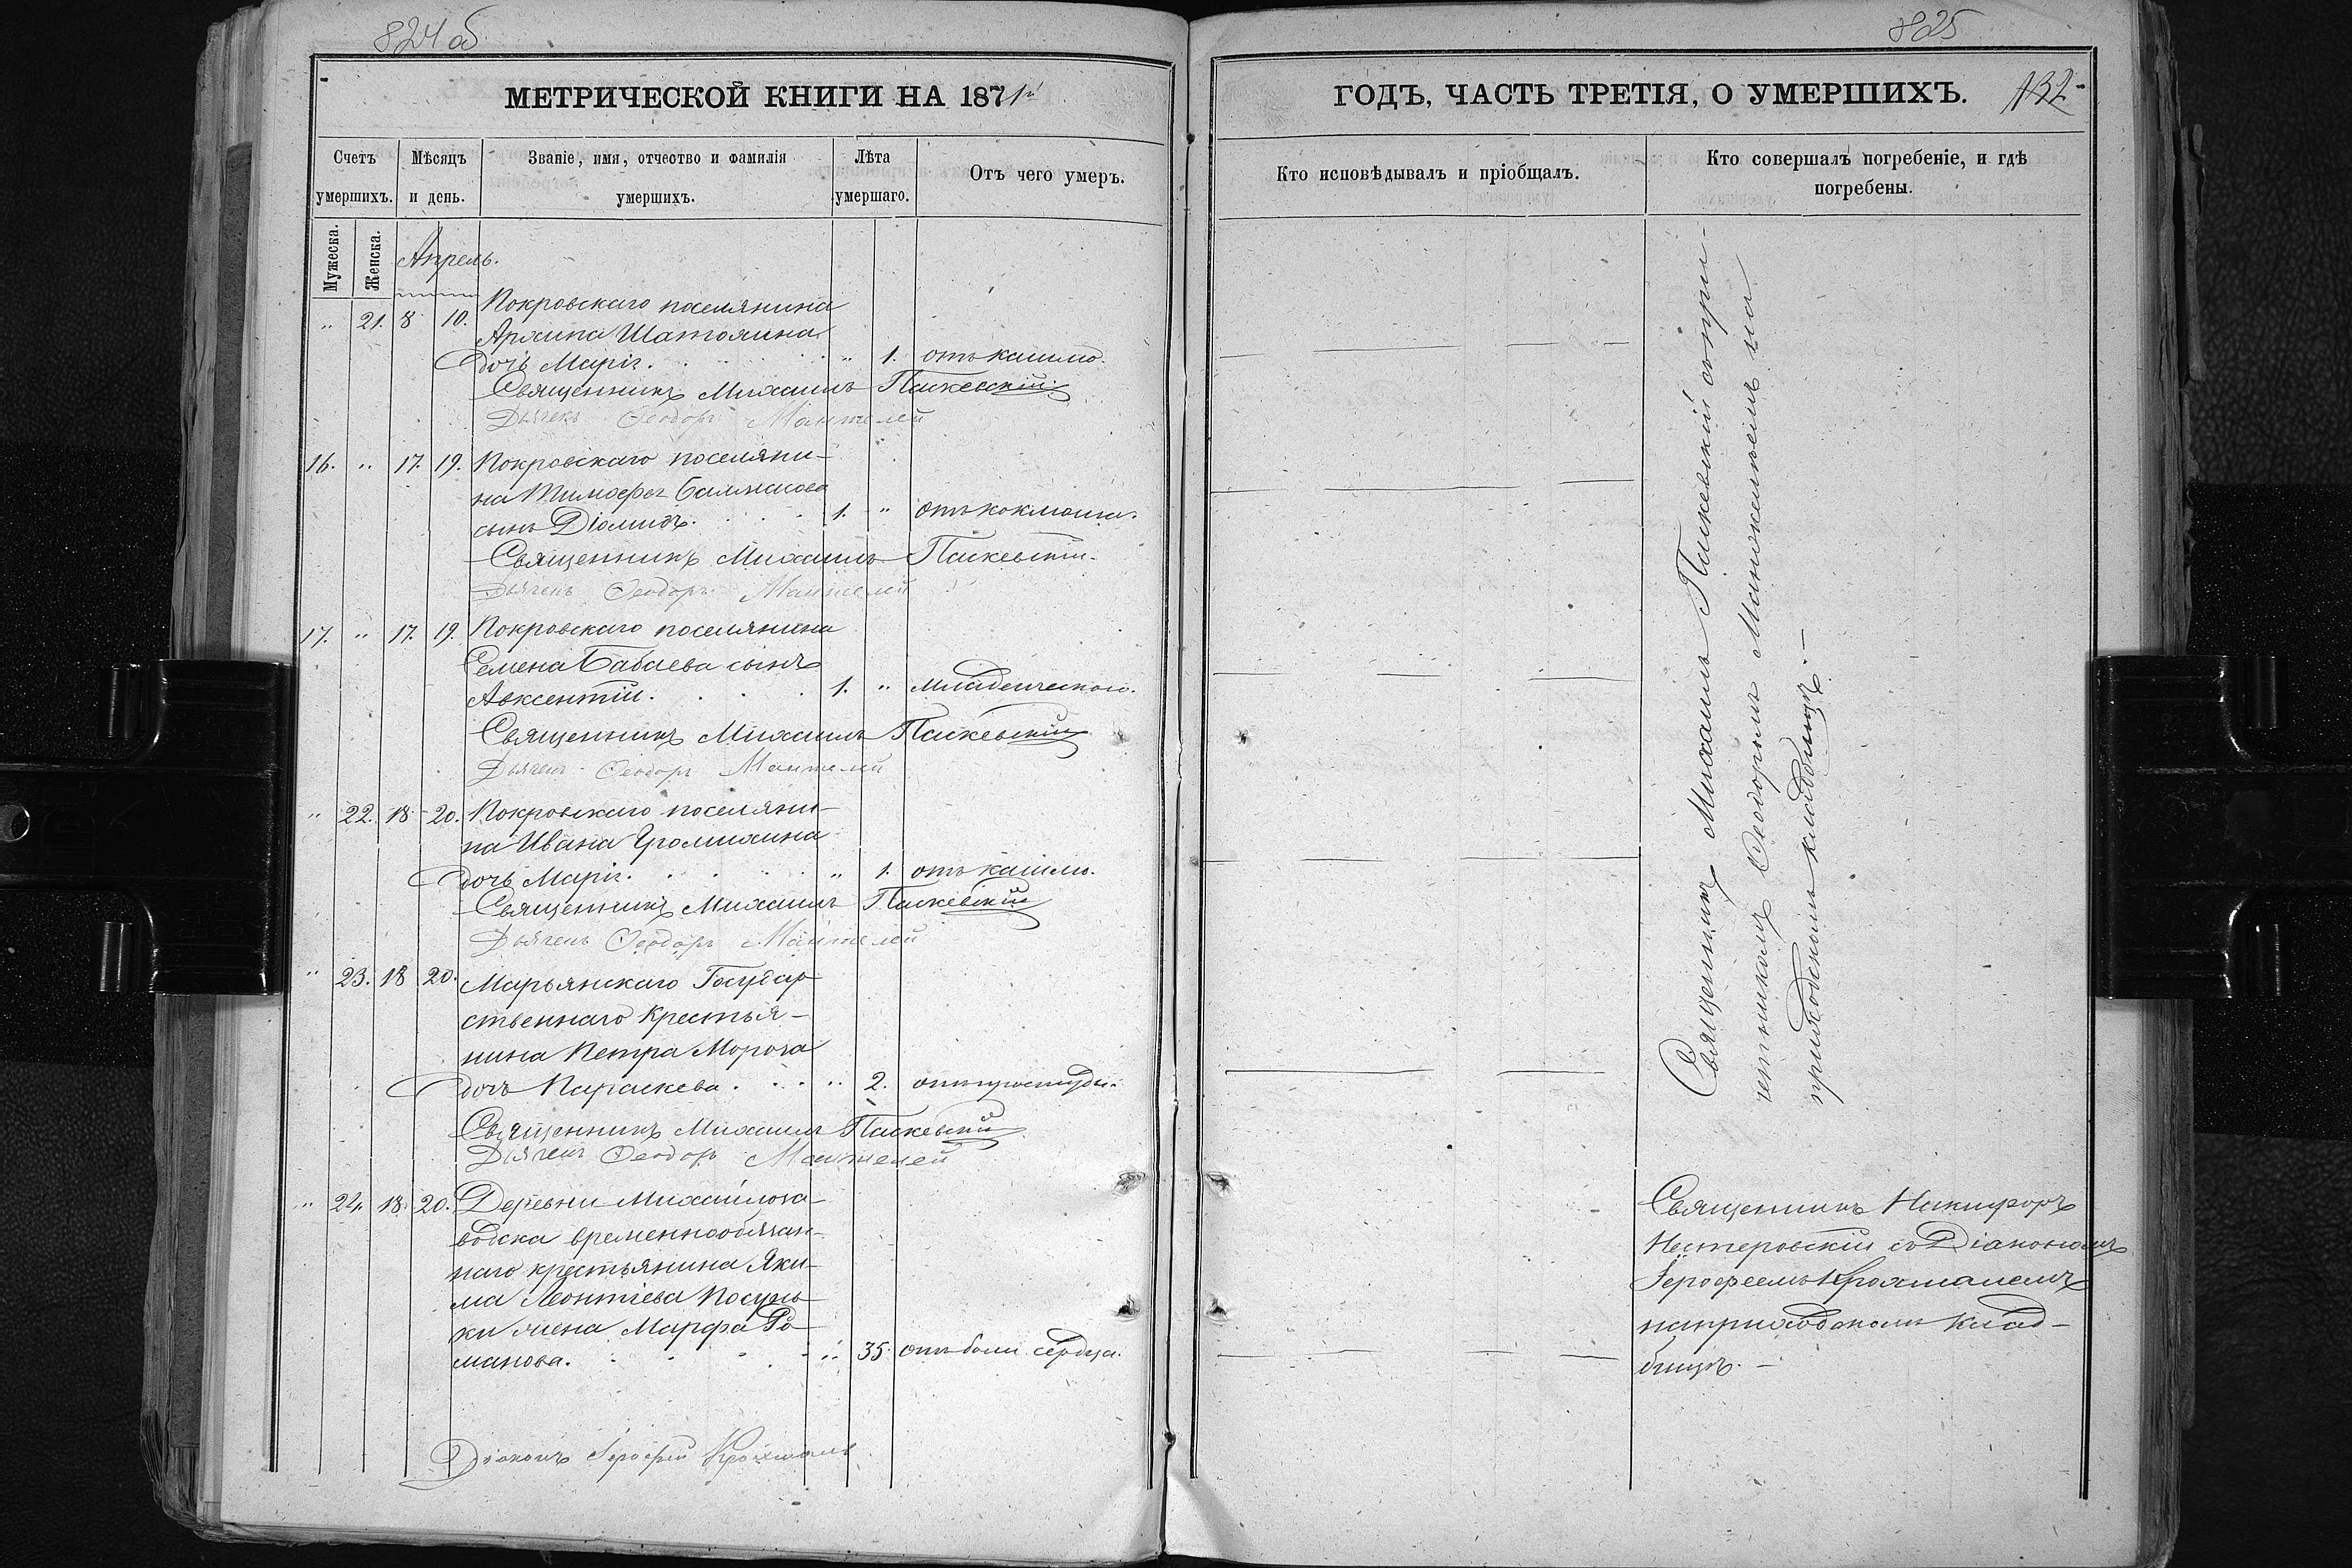 824 об
МЕТРИЧЕСКОЙ КНИГИ НА 1871й
Счетъ умершихъ.
Мѣсяцъ и день.
Званіе, имя, отчество и фамилія умершихъ.
Лѣта умершаго.
Отъ чего умеръ.
Мужеска.
Женска.
Апрель.
„ 21. 8 10. Покровскаго поселянина
Архипа
дочь Марія. „ 1. отъ кашлю.
Священникъ Михаилъ Паскевскій
Дьячекъ Ѳеодоръ Мантелей
16. „ 17. 19. Покровскаго поселяни-
на Тимофея
сынъ Діомидъ. 1. „ отъ коклюша.
Священникъ Михаилъ Паскевскій.
Дьячекъ Ѳеодоръ Мантелей
17. „ 17. 19. Покровскаго поселянина
Семена Бабаева сынъ
Авксентій. 1. „ Младенческою.
Священникъ Михаилъ Паскевскій
Дьячекъ Ѳеодоръ Мантелей
„ 22. 18 20. Покровскаго поселяни-
на Ивана Громихина
дочь Марія. „ 1. отъ кашлю.
Священникъ Михаилъ Паскевскій
Дьячекъ Ѳеодоръ Мантелей
„ 23. 18 20. Марьянскаго Государ
ственнаго крестья-
нина Петра Мороза
дочь Параскева. „ 2. отъ простуды.
Священникъ Михаилъ Паскевскій
Дьячекъ Ѳеодоръ Мантелей
„ 24. 18. 20. Деревни Михайлоза-
водска временнообязан-
наго крестьянина Яки-
ма Леонтіева
ки жена Марфа Ро-
манова. „ 35. отъ боли сердца.
Діаконъ Іерофей Крохмаль
825
ГОДЪ, ЧАСТЬ ТРЕТІЯ, О УМЕРШИХЪ. 132
Кто исповѣдывалъ и пріобщалъ.
Кто совершалъ погребеніе, и гдѣ
погребены.
Священникъ Михаилъ Паскевскій съ при-
четникомъ Ѳеодоромъ Мантелеемъ на
приходскомъ кладбищѣ.—
Священникъ Никифоръ
Нестеровскій съ Діакономъ
Іерофеемъ Крохмалемъ
на приходскомъ клад-
бищѣ.—